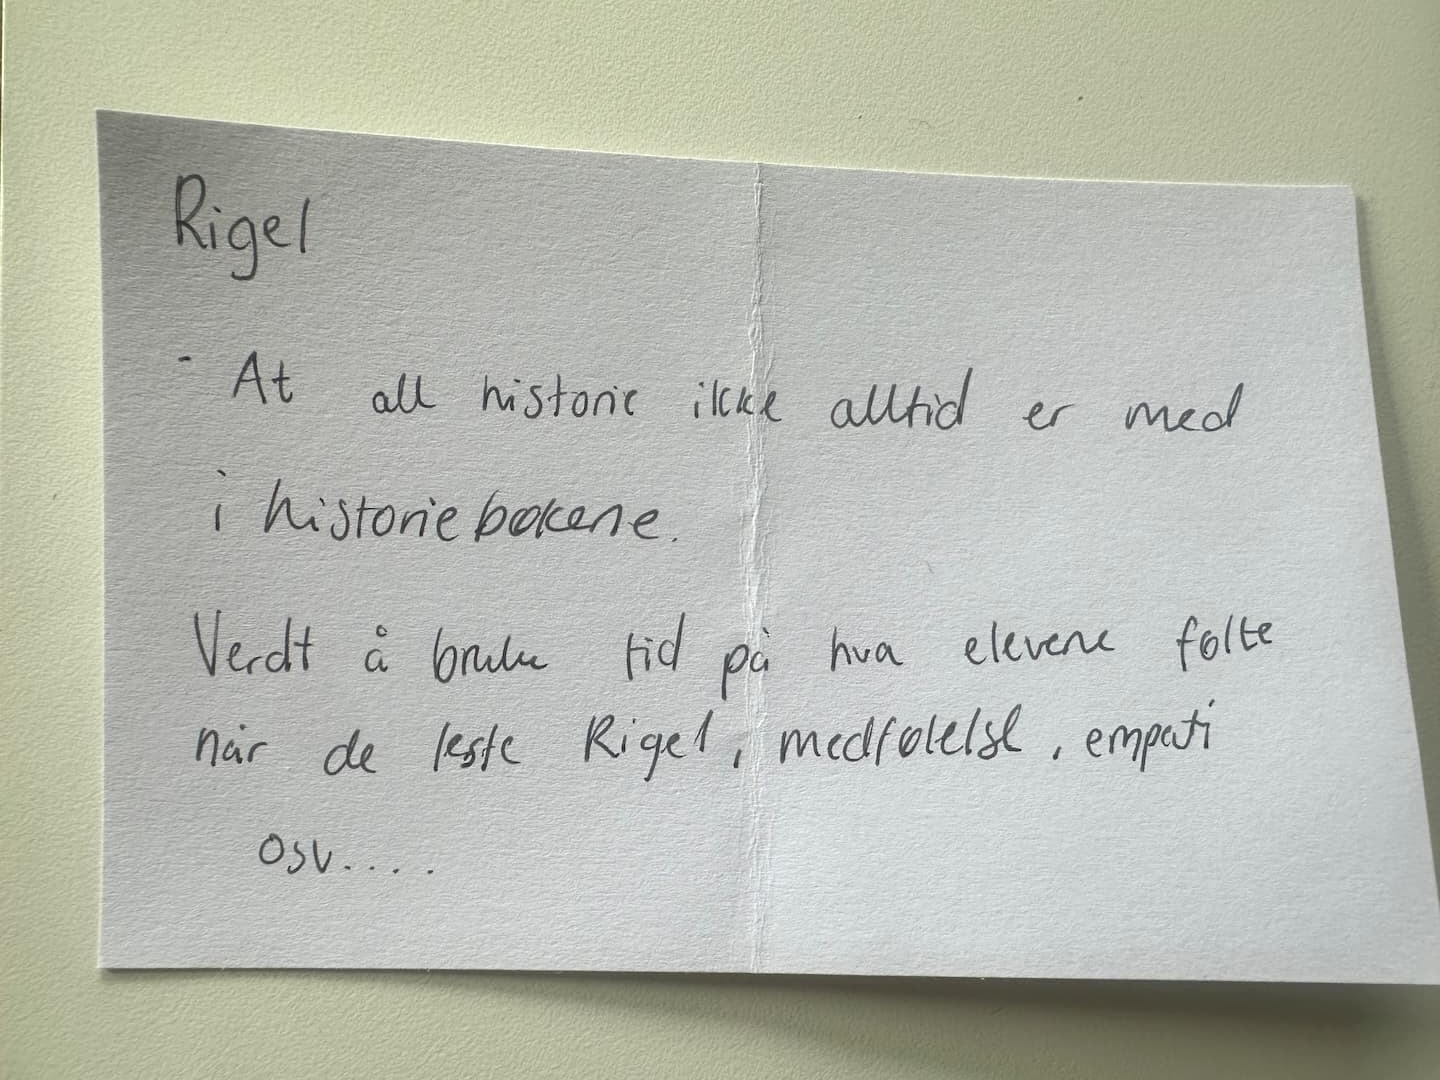 Rigel
- At all historie ikke alltid er med
i historiebøkene.
Verdt å bruke tid på hva elevene følte
når de leste Rigel, medfølelse, empati
osv....